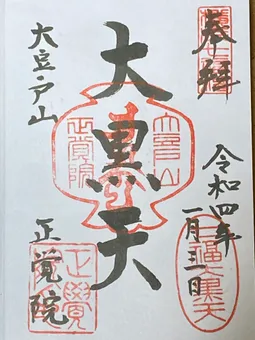 奉拝
令和四年
一月三日
大黒天
大豆戸山
正覚院
大豆戸山
正覚院
正覺院